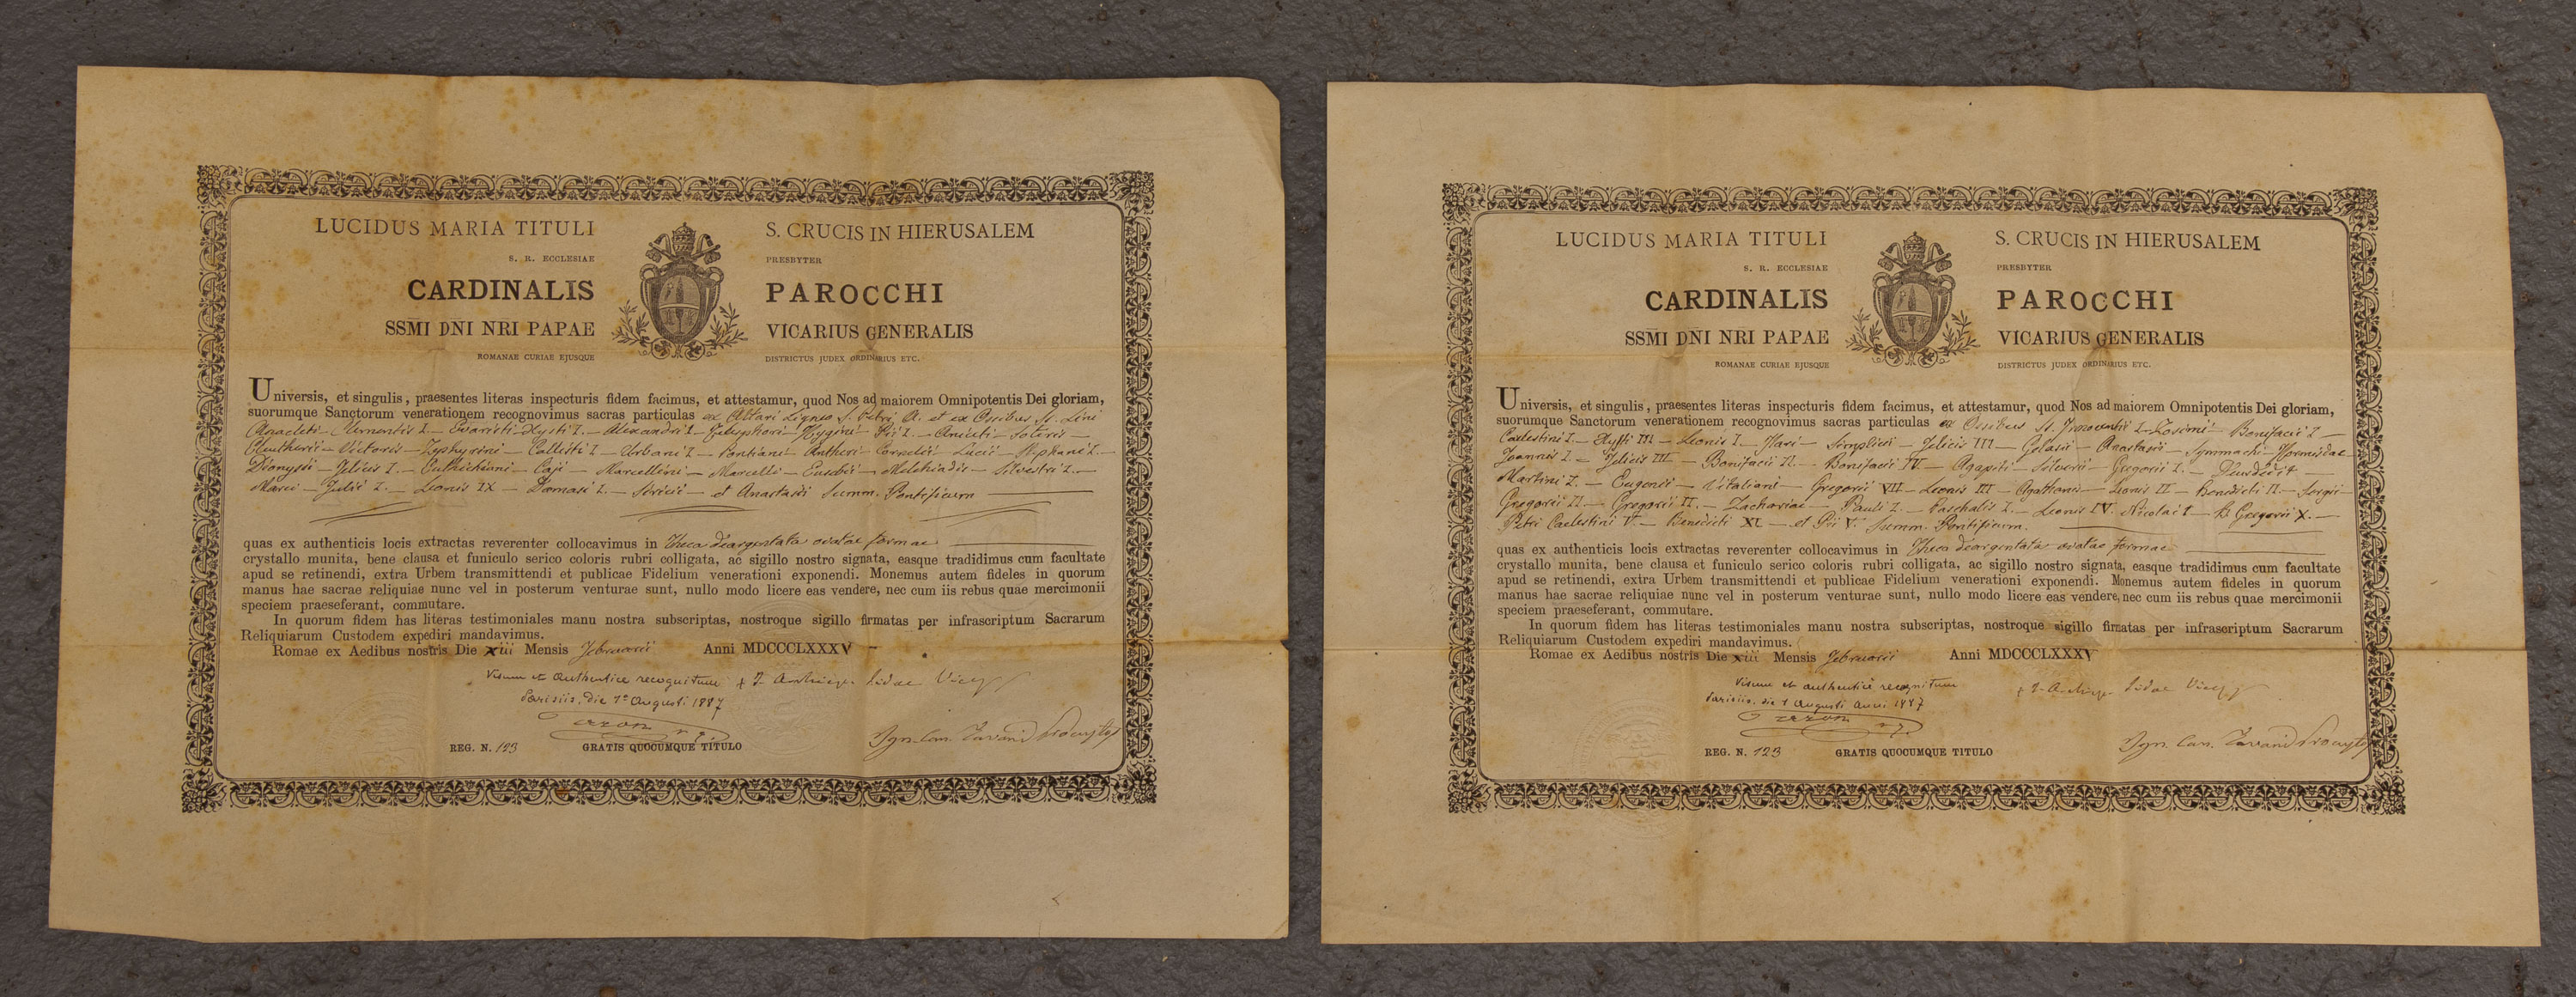 LUCIDUS MARIA TITULI S. CRUCIS IN HIERUSALEM
S. R. ECCLESIAE PRESBYTER
CARDINALIS PAROCCHI
SSM̄I DN̄I NRI PAPAE VICARIUS GENERALIS
ROMANAE CURIAE EJUSQUE DISTRICTUS JUDEX ORDINARIUS ETC.
Universis, et singulis, praesentes literas inspecturis fidem facimus, et attestamur, quod Nos ad maiorem Omnipotentis Dei gloriam,
suorumque Sanctorum venerationem recognovimus sacras particulas ex Altari Ligneo S. Petri A. et ex Ossibus SS. Lini
Anacleti – Clementis I – Evaristi – Xysti I. – Alexandri I – Telesphori – Hygini – Pii I – Aniceti – Soteris –
Eleutherii – Victoris – Zephyrini – Callisti I – Urbani I – Pontiani – Antheri – Cornelii – Lucii – Stephani I. –
Dionysii – Felicis I. – Euthichiani – Caji – Marcellini – Marcelli – Eusebii – Melchiadis – Silvestri I. –
Marci – Julii I. – Leonis IX – Damasi I. – Siricii – et Anastasii Summ. Pontificum
quas ex authenticis locis extractas reverenter collocavimus in Theca deargentata ovatae formae
crystallo munita, bene clausa et funiculo serico coloris rubri colligata, ac sigillo nostro signata, easque tradidimus cum facultate
apud se retinendi, extra Urbem transmittendi et publicae Fidelium venerationi exponendi. Monemus autem fideles in quorum
manus hae sacrae reliquiae nunc vel in posterum venturae sunt, nullo modo licere eas vendere, nec cum iis rebus quae mercimonii
speciem praeseferant, commutare.
In quorum fidem has literas testimoniales manu nostra subscriptas, nostroque sigillo firmatas per infrascriptum Sacrarum
Reliquiarum Custodem expediri mandavimus.
Romae ex Aedibus nostris Die xiii Mensis Februarii Anni MDCCCLXXXV
Visum et authentice recognitum
Parisiis, die 1a Augusti 1887
REG. N. 123 GRATIS QUOCUMQUE TITULO
LUCIDUS MARIA TITULI S. CRUCIS IN HIERUSALEM
S. R. ECCLESIAE PRESBYTER
CARDINALIS PAROCCHI
SSM̄I DN̄I NRI PAPAE VICARIUS GENERALIS
ROMANAE CURIAE EJUSQUE DISTRICTUS JUDEX ORDINARIUS ETC.
Universis, et singulis, praesentes literas inspecturis fidem facimus, et attestamur, quod Nos ad maiorem Omnipotentis Dei gloriam,
suorumque Sanctorum venerationem recognovimus sacras particulas ex Ossibus SS. Innocentii I – Zosimi – Bonifacii I –
Caelestini I – Xysti III – Leonis I – Hari – Simplicii – Felicis III – Gelasii – Anastasii – Symmachi – Hormisdae
Joannis I – Felicis III – Bonifacii II – Bonifacii IV – Agapiti – Silverii – Gregorii I. – Deusdedit –
Martini I. – Eugenii – Vitaliani – Gregorii VII – Leonis III – Agathonis – Leonis II – Benedicti II – Sergii –
Gregorii II – Gregorii II. – Zachariae – Pauli I. – Paschalis I. – Leonis IV. Nicolai I – B. Gregorii X. –
Petri Caelestini V. – Benedicti XI – et Pii V. Summ. Pontificum.
quas ex authenticis locis extractas reverenter collocavimus in Theca deargentata ovatae formae
crystallo munita, bene clausa et funiculo serico coloris rubri colligata, ac sigillo nostro signata, easque tradidimus cum facultate
apud se retinendi, extra Urbem transmittendi et publicae Fidelium venerationi exponendi. Monemus autem fideles in quorum
manus hae sacrae reliquiae nunc vel in posterum venturae sunt, nullo modo licere eas vendere, nec cum iis rebus quae mercimonii
speciem praeseferant, commutare.
In quorum fidem has literas testimoniales manu nostra subscriptas, nostroque sigillo firmatas per infrascriptum Sacrarum
Reliquiarum Custodem expediri mandavimus.
Romae ex Aedibus nostris Die xiii Mensis Februarii Anni MDCCCLXXXV
Visum et authentice recognitum
Parisiis, die 1 Augusti Anni 1887
REG. N. 123 GRATIS QUOCUMQUE TITULO